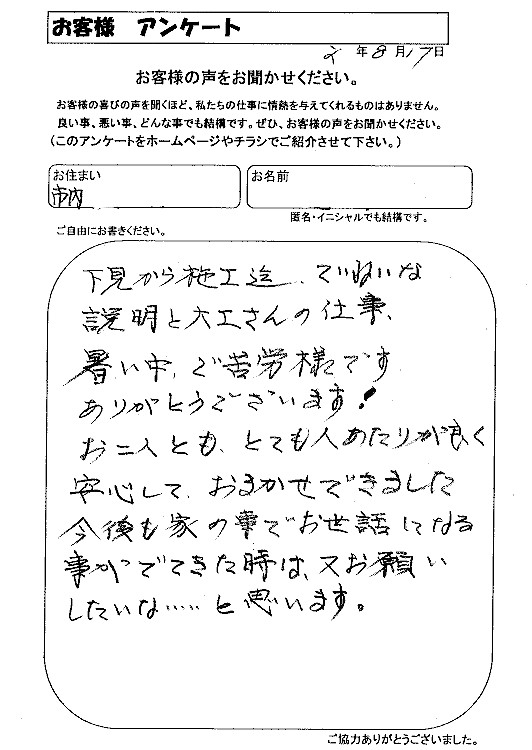 お客様 アンケート
2年8月17日
お客様の声をお聞かせください。
お客様の喜びの声を聞くほど、私たちの仕事に情熱を与えてくれるものはありません。
良い事、悪い事、どんな事でも結構です。ぜひ、お客様の声をお聞かせください。
(このアンケートをホームページやチラシでご紹介させて下さい。)
お住まい
市内
お名前
匿名・イニシャルでも結構です。
ご自由にお書きください。
下見から施工迄、ていねいな
説明と大工さんの仕事、
暑い中、ご苦労様です
ありがとうございます!
お二人とも、とても人あたりが良く
安心して、おまかせできました
今後も家の事でお世話になる
事がでてきた時は、又お願い
したいな・・・・・と思います。
ご協力ありがとうございました。